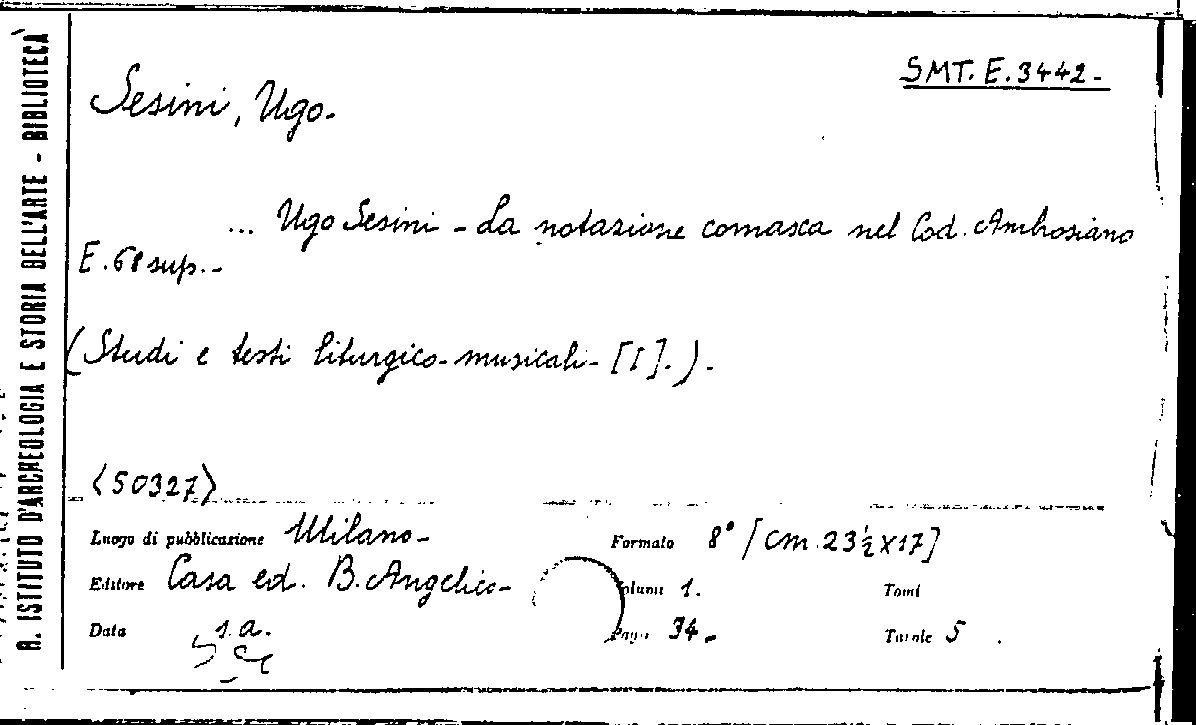 R. ISTITUTO D'ARCHEOLOGIA E STORIA DELL'ARTE - BIBLIOTECA
SMT. E. 3442.
Sesini, Ugo.
... Ugo Sesini - La notazione comasca nel Cod. Ambrosiano
E. 68 sup. -
(Studi e testi liturgico-musicali - [I].).
<50327>
Luogo di pubblicazione Milano - Formato 8° [cm. 23½ x 17]
Editore Casa ed. B. Angelico - Volumi 1. Tomi
Data s.a. Pagg. 34. Tavole 5